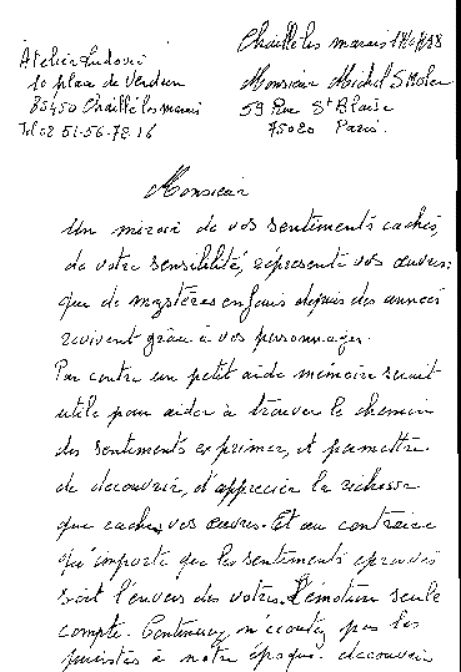 Atelier Ludovic
10 place de Verdun
85450 Chaillé les marais
Tel 02 51-56-72 16
Chaillé les marais
Monsieur Michel
59 Rue St Blaise
75020 Paris.
Monsieur
Un miroir de vos sentiments cachés,
de votre sensibilité, représente vos œuvres:
que de mystères enfouis depuis des années
revivent grâce à vos personnages.
Par contre un petit aide mémoire serait
utile pour aider à trouver le chemin
des sentiments exprimer, et permettre
de decouvrir, d'apprecier la richesse
que caches vos œuvres. Et au contraire
qu'importe que les sentiments eprouvés
soit l'envers des votres. L'émotion seule
compte. Continuez n'ecoutez pas les
puristes à notre époque. decouvrir